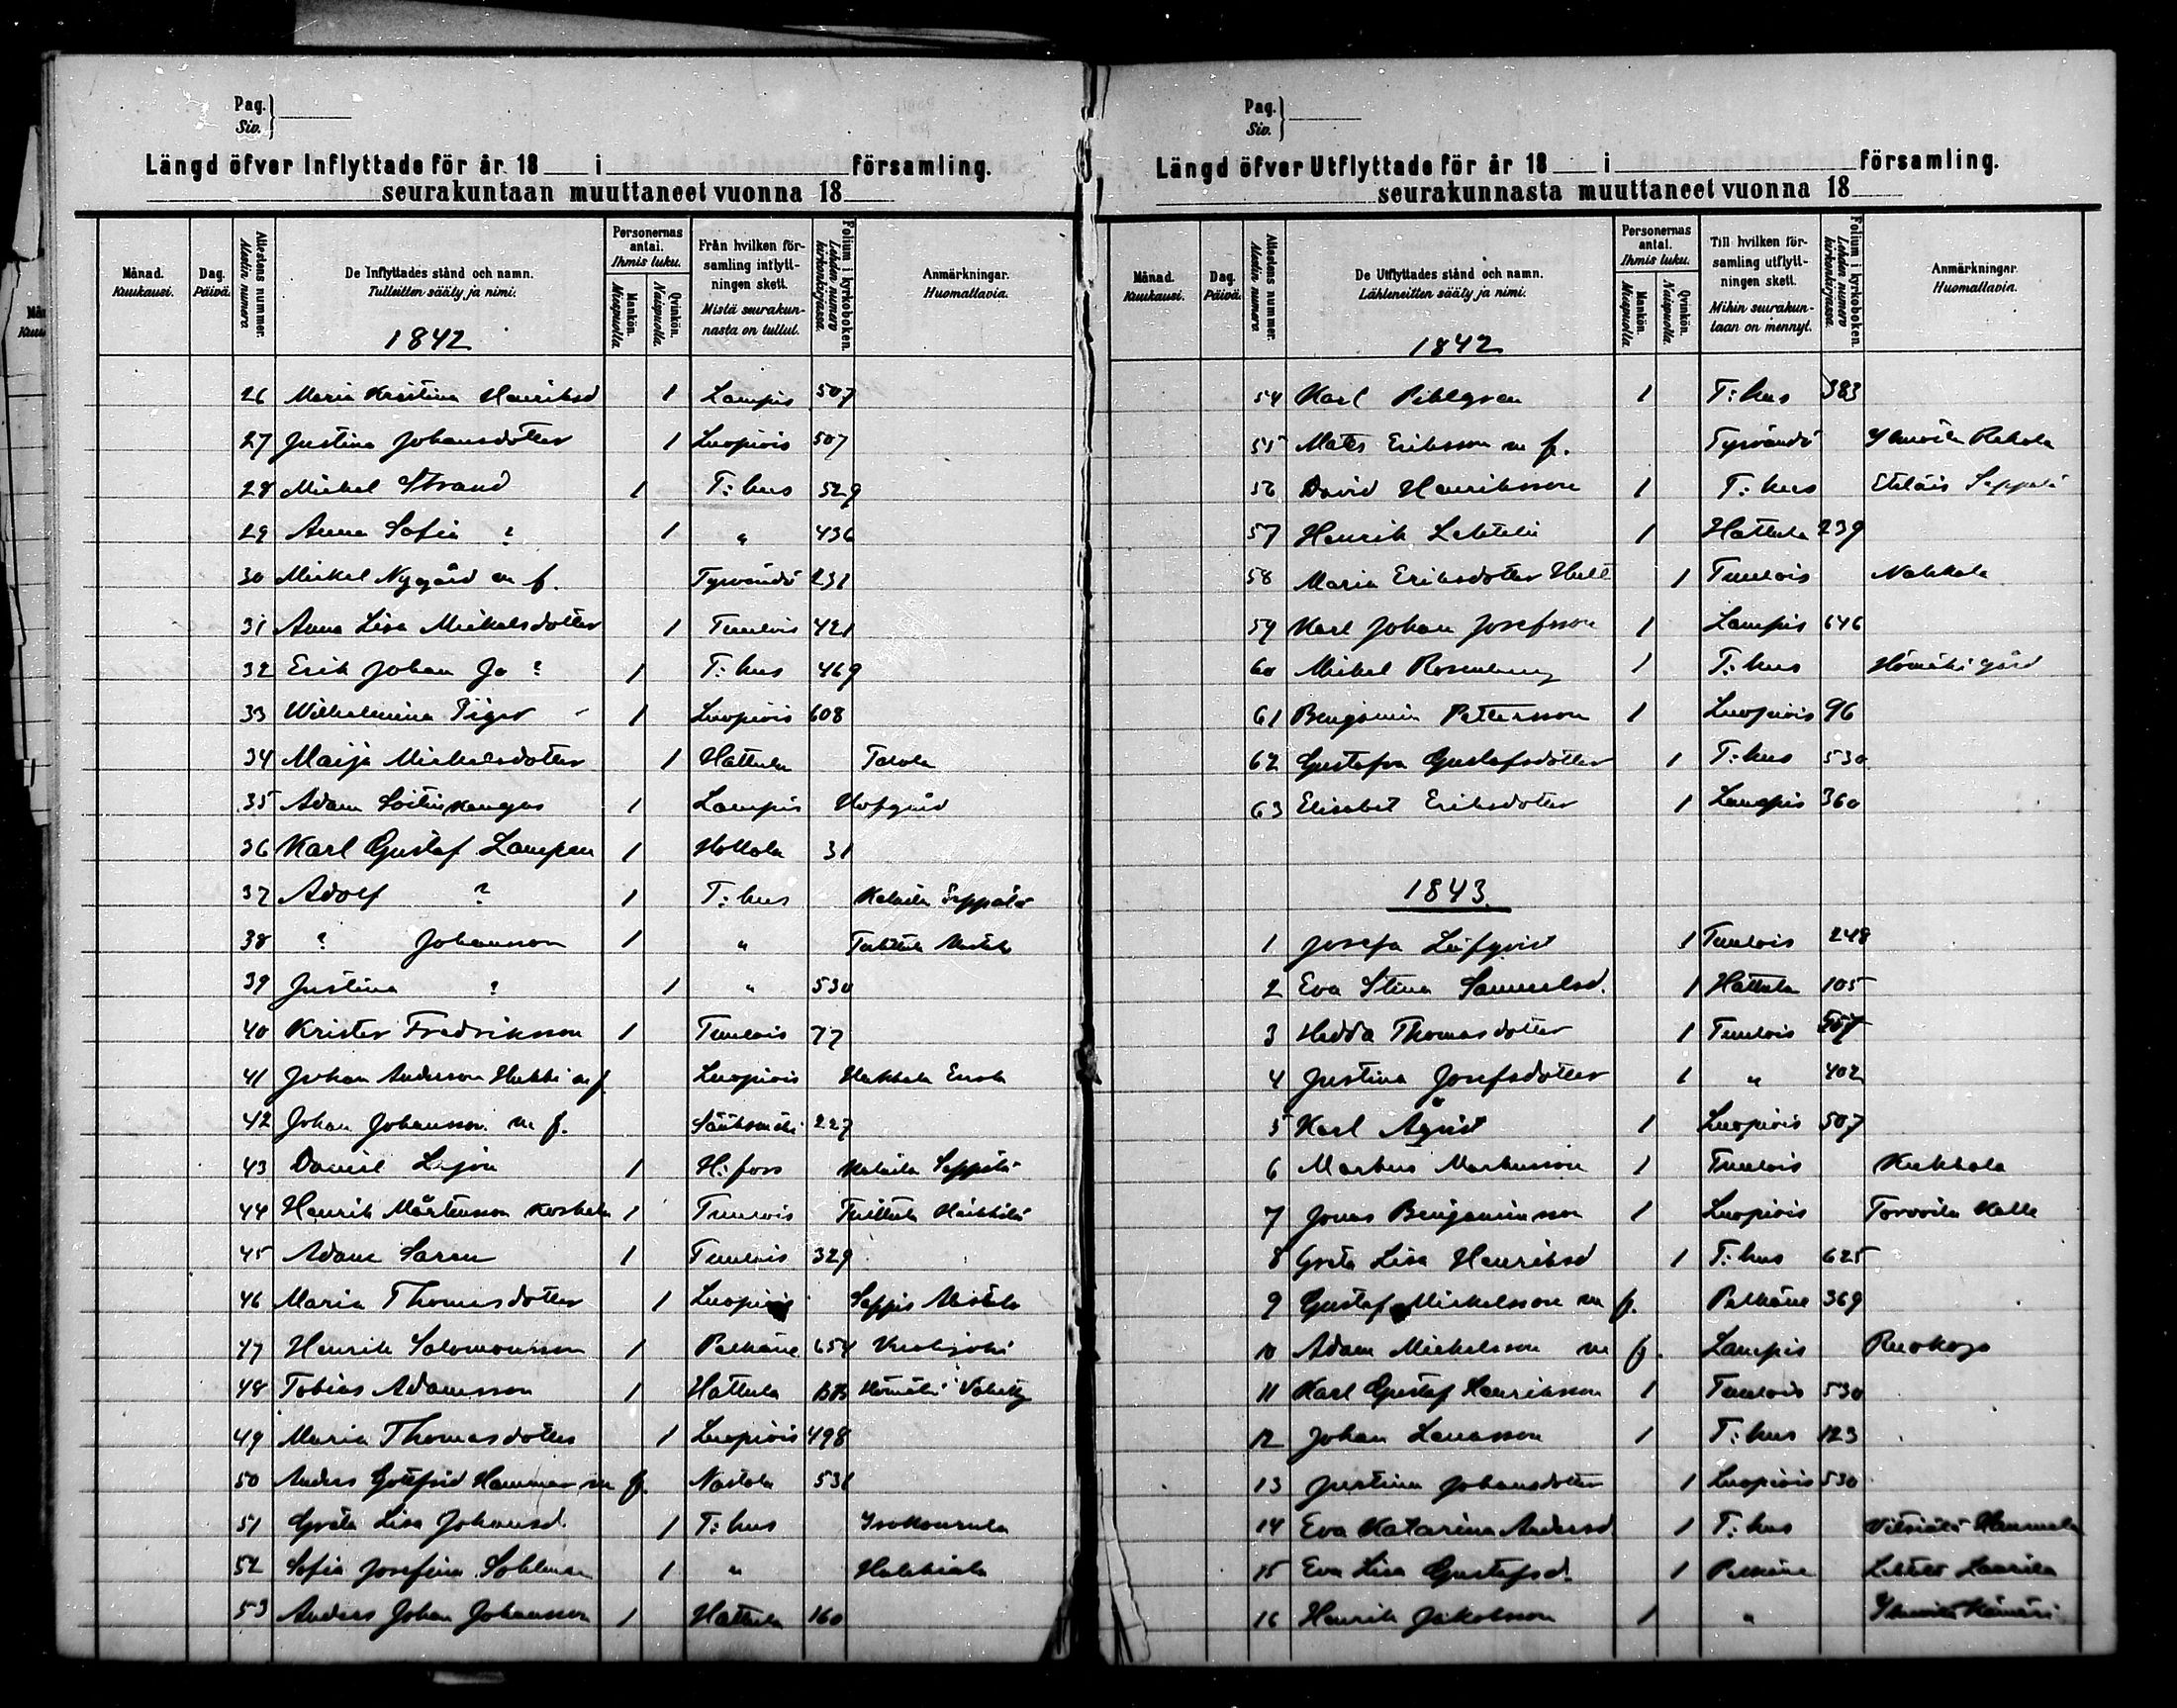 Pag.
Siv.
Längd öfver Inflyttade för år 18 i församling.
seurakuntaan muuttaneet vuonna 18
Månad. Kuukausi.
Dag. Päivä.
Attestens nummer. Atestin numero
De Inflyttades stånd och namn.
Tulleitten sääty ja nimi.
1842
Personernas antal. Ihmis luku.
Mankön. Miespuolia.
Qvinkön. Naispuolia.
Från hvilken församling inflyttningen skett.
Mistä seurakunnasta on tullut.
Folium i kyrkoboken. Lehden numero kirkonkirjassa.
Anmärkningar.
Huomattavia.
26 Maria Kristina Henriksd 1 Lampis 507
27 Justina Johansdotter 1 Luopiois 507
28 Mickel Strand 1 T:hus 529
29 Anna Sofia ? 1 " 436
30 Mickel Nygård m f. Tyrvändö 231
31 Anna Lisa Mickelsdotter 1 Tuulois 421
32 Erik Johan Jo ? 1 T:hus 469
33 Wilhelmina Piger 1 Luopiois 608
34 Maija Mickelsdotter 1 Hattula Talola
35 Adam Soitinkangas 1 Lampis Hofgård
36 Karl Gustaf Lampen 1 Hollola 31
37 Adolf ? 1 T:hus Kalaila Seppälä
38 ? Johansson 1 "
39 Justina ? 1 " 530
40 Krister Fredriksson 1 Tuulois 77
41 Johan Andersson m f. Luopiois Hakkala
42 Johan Johansson m f. Sääksmäki 227
43 Daniel Lejon 1 H:fors Kalaila Seppälä
44 Henrik Mårtensson Koskela 1 Tuulois
45 Adam Saren 1 Tuulois 329
46 Maria Thomasdotter 1 Luopiois
47 Henrik Salomonsson 1 Pelkäne 654
48 Tobias Adamsson 1 Hattula
49 Maria Thomasdotter 1 Luopiois 498
50 Anders Gottfrid Hammar m f. Nastola 531
51 Greta Lisa Johansd. 1 T:hus
52 Sofia Josefina Sohlman 1 "
53 Anders Johan Johansson 1 Hattula 160
Pag.
Siv.
Längd öfver Utflyttade för år 18 i församling.
seurakunnasta muuttaneet vuonna 18
Månad. Kuukausi.
Dag. Päivä.
Attestens nummer. Atestin numero
De Utflyttades stånd och namn.
Lähteneitten sääty ja nimi.
1842
Personernas antal. Ihmis luku.
Mankön. Miespuolia.
Qvinkön. Naispuolia.
Till hvilken församling utflyttningen skett.
Mihin seurakuntaan on mennyt.
Folium i kyrkoboken. Lehden numero kirkonkirjassa.
Anmärkningar.
Huomattavia.
54 Karl Pihlgren 1 T:hus 383
55 Mats Eriksson m f. Tyrvändö
56 David Henriksson 1 T:hus Eteläis Seppälä
57 Henrik Lehtelin 1 Hattula 239
58 Maria Eriksdotter Hult 1 Tuulois
59 Karl Johan Josefsson 1 Lampis 646
60 Mickel Rosenberg 1 T:hus Hömäki gård
61 Benjamin Pettersson 1 Luopiois 96
62 Gustafva Gustafsdotter 1 T:hus 530
63 Elisabet Eriksdotter 1 Lampis 360
1843
1 Josefa Löfqvist 1 Tuulois 248
2 Eva Stina Samuelsd. 1 Hattula 105
3 Hedda Thomasdotter 1 Tuulois 507
4 Justina Josefsdotter 1 " 402
5 Karl Åqvist 1 Luopiois 507
6 Markus Markusson 1 Tuulois Kukkola
7 Jonas Benjaminsson 1 Luopiois Torvoila
8 Greta Lisa Henriksd 1 T:hus 625
9 Gustaf Mickelsson m f. Pelkäne 369
10 Adam Mickelsson m f. Lampis
11 Karl Gustaf Henriksson 1 Tuulois 530
12 Johan 1 T:hus 123
13 Justina Johansdotter 1 Luopiois 530
14 Eva Katarina Andersd 1 T:hus
15 Eva Lisa Gustafsd. 1 Pelkäne
16 Henrik Jakobsson 1 "